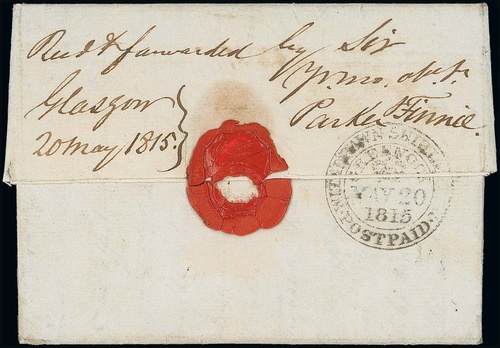 Recd & forwarded by Sir
Yr. mo. obt. st.
Parker Finnie.
Glasgow
20 May 1815.
MAY 20
1815
POSTPAID